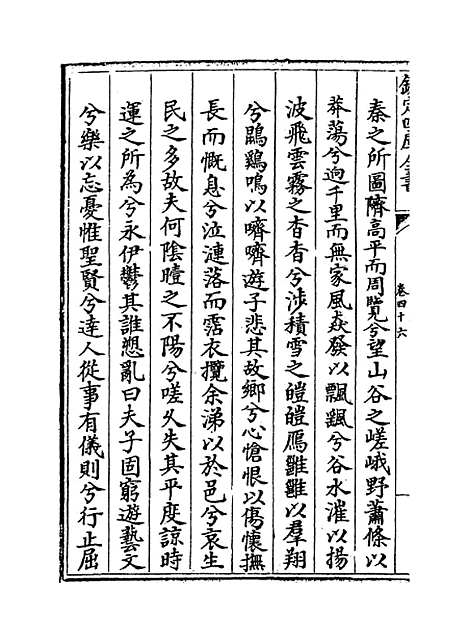 欽定四庫全書
卷四十六
秦之所圖隮高平而周覽兮望山谷之嵯峨野蕭條以
莽蕩兮逈千里而無家風猋發以飄颻兮谷水漼以揚
波飛雲霧之杳杳兮涉積雪之皚皚鴈雝雝以羣翔
兮鵾鷄鳴以嚌嚌遊子悲其故鄉兮心愴恨以傷懷撫
長而慨息兮泣漣落而霑衣攬余涕以於邑兮哀生
民之多故夫何陰曀之不陽兮嗟久失其平度諒時
運之所為兮永伊鬱其誰愬亂曰夫子固窮遊藝文
兮樂以忘憂惟聖賢兮達人從事有儀則兮行止屈